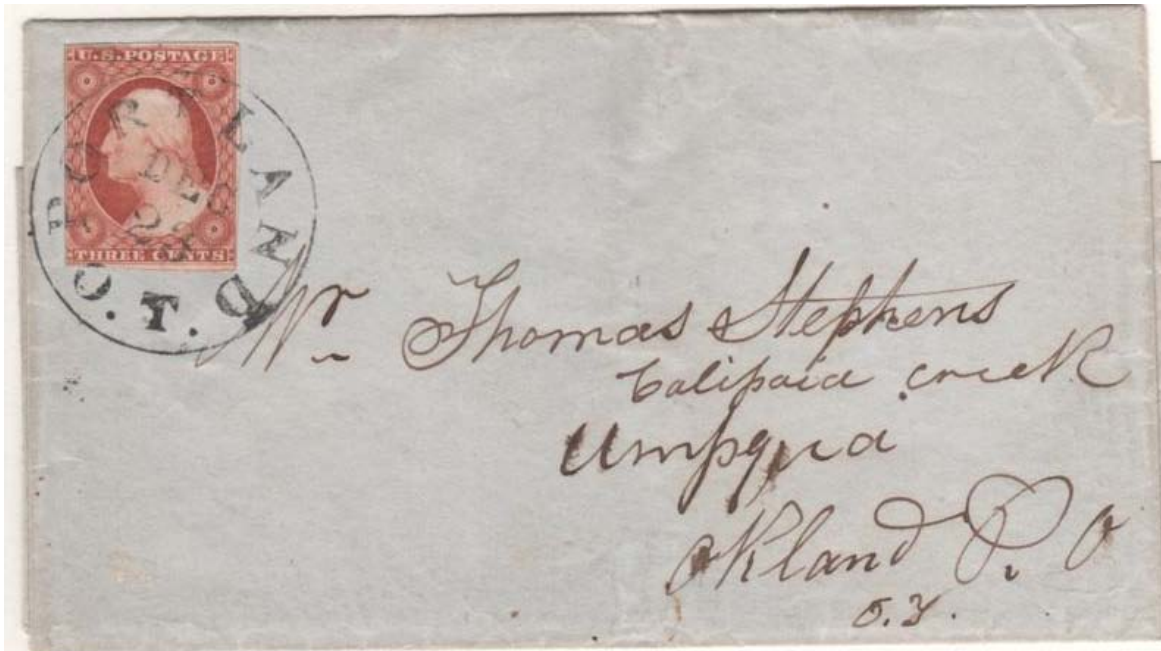 U.S. POSTAGE
THREE CENTS
PORTLAND
O.T.
DEC
23
Mr Thomas Stephens
Calipaia creek
Umpqua
Okland P. O
O.T.